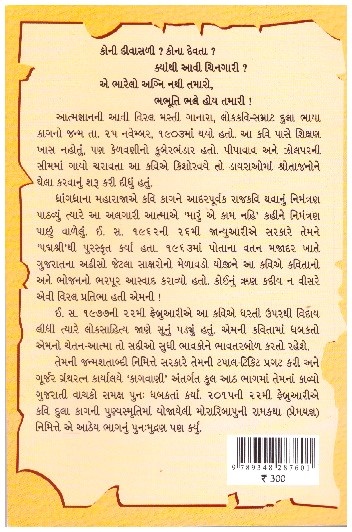 કોની દીવાસળી ? કોના દેવતા ?
ક્યાંથી આવી ચિનગારી ?
એ ભારેલો અગ્નિ નથી તમારો,
ભભૂતિ ભલે હોય તમારી !
આત્મજ્ઞાનની આવી વિરલ મસ્તી ગાનારા, લોકકવિ-સમ્રાટ દુલા ભાયા
કાગનો જન્મ તા. ૨૫ નવેમ્બર, ૧૯૦૩માં થયો હતો. આ કવિ પાસે શિક્ષણ
ખાસ નહોતું, પણ કેળવણીનો કુબેરભંડાર હતો. પીપાવાવ અને ઝોલપરની
સીમમાં ગાયો ચરાવતા આ કવિએ કિશોરવયે તો ડાયરાઓમાં શ્રોતાજનોને
ઘેલા કરવાનું શરૂ કરી દીધું હતું.
ધ્રાંગધ્રાના મહારાજાએ કવિ કાગને આદરપૂર્વક રાજકવિ થવાનું નિમંત્રણ
પાઠવ્યું ત્યારે આ અલગારી આત્માએ 'મારું એ કામ નહિ' કહીને નિમંત્રણ
પાછું વાળેલું. ઈ. સ. ૧૯૬૨ની ૨૬મી જાન્યુઆરીએ સરકારે તેમને
'પદ્મશ્રી'થી પુરસ્કૃત કર્યા હતા. ૧૯૬૩માં પોતાના વતન મજાદર ખાતે
ગુજરાતના અઢીસો જેટલા સાક્ષરોનો મેળાવડો યોજીને આ કવિએ કવિતાનો
અને ભોજનનો ભરપૂર આસ્વાદ કરાવ્યો હતો. કોઈનું ઋણ કદીય ન વીસરે
એવી વિરલ પ્રતિભા હતી એમની !
ઈ. સ. ૧૯૭૭ની ૨૨મી ફેબ્રુઆરીએ આ કવિએ ધરતી ઉપરથી વિદાય
લીધી ત્યારે લોકસાહિત્ય જાણે સૂનું પડ્યું હતું. એમની કવિતામાં ધબકતો
એમનો ચેતન-આત્મા તો સદીઓ સુધી ભાવકોને ભાવતરબોળ કરતો રહેશે.
તેમની જન્મશતાબ્દી નિમિત્તે સરકારે તેમની ટપાલ-ટિકિટ પ્રગટ કરી અને
ગૂર્જર ગ્રંથરત્ન કાર્યાલયે 'કાગવાણી' અંતર્ગત કુલ આઠ ભાગમાં તેમનાં કાવ્યો
ગુજરાતી વાચકો સમક્ષ પુનઃ ધબકતાં કર્યાં. ૨૦૧૫ની ૨૨મી ફેબ્રુઆરીએ
કવિ દુલા કાગની પુણ્યસ્મૃતિમાં યોજાયેલી મોરારિબાપુની રામકથા (પ્રેમયજ્ઞ)
નિમિત્તે એ આઠેય ભાગનું પુનઃમુદ્રણ પણ કર્યું.
9 789348 287601
₹ 300